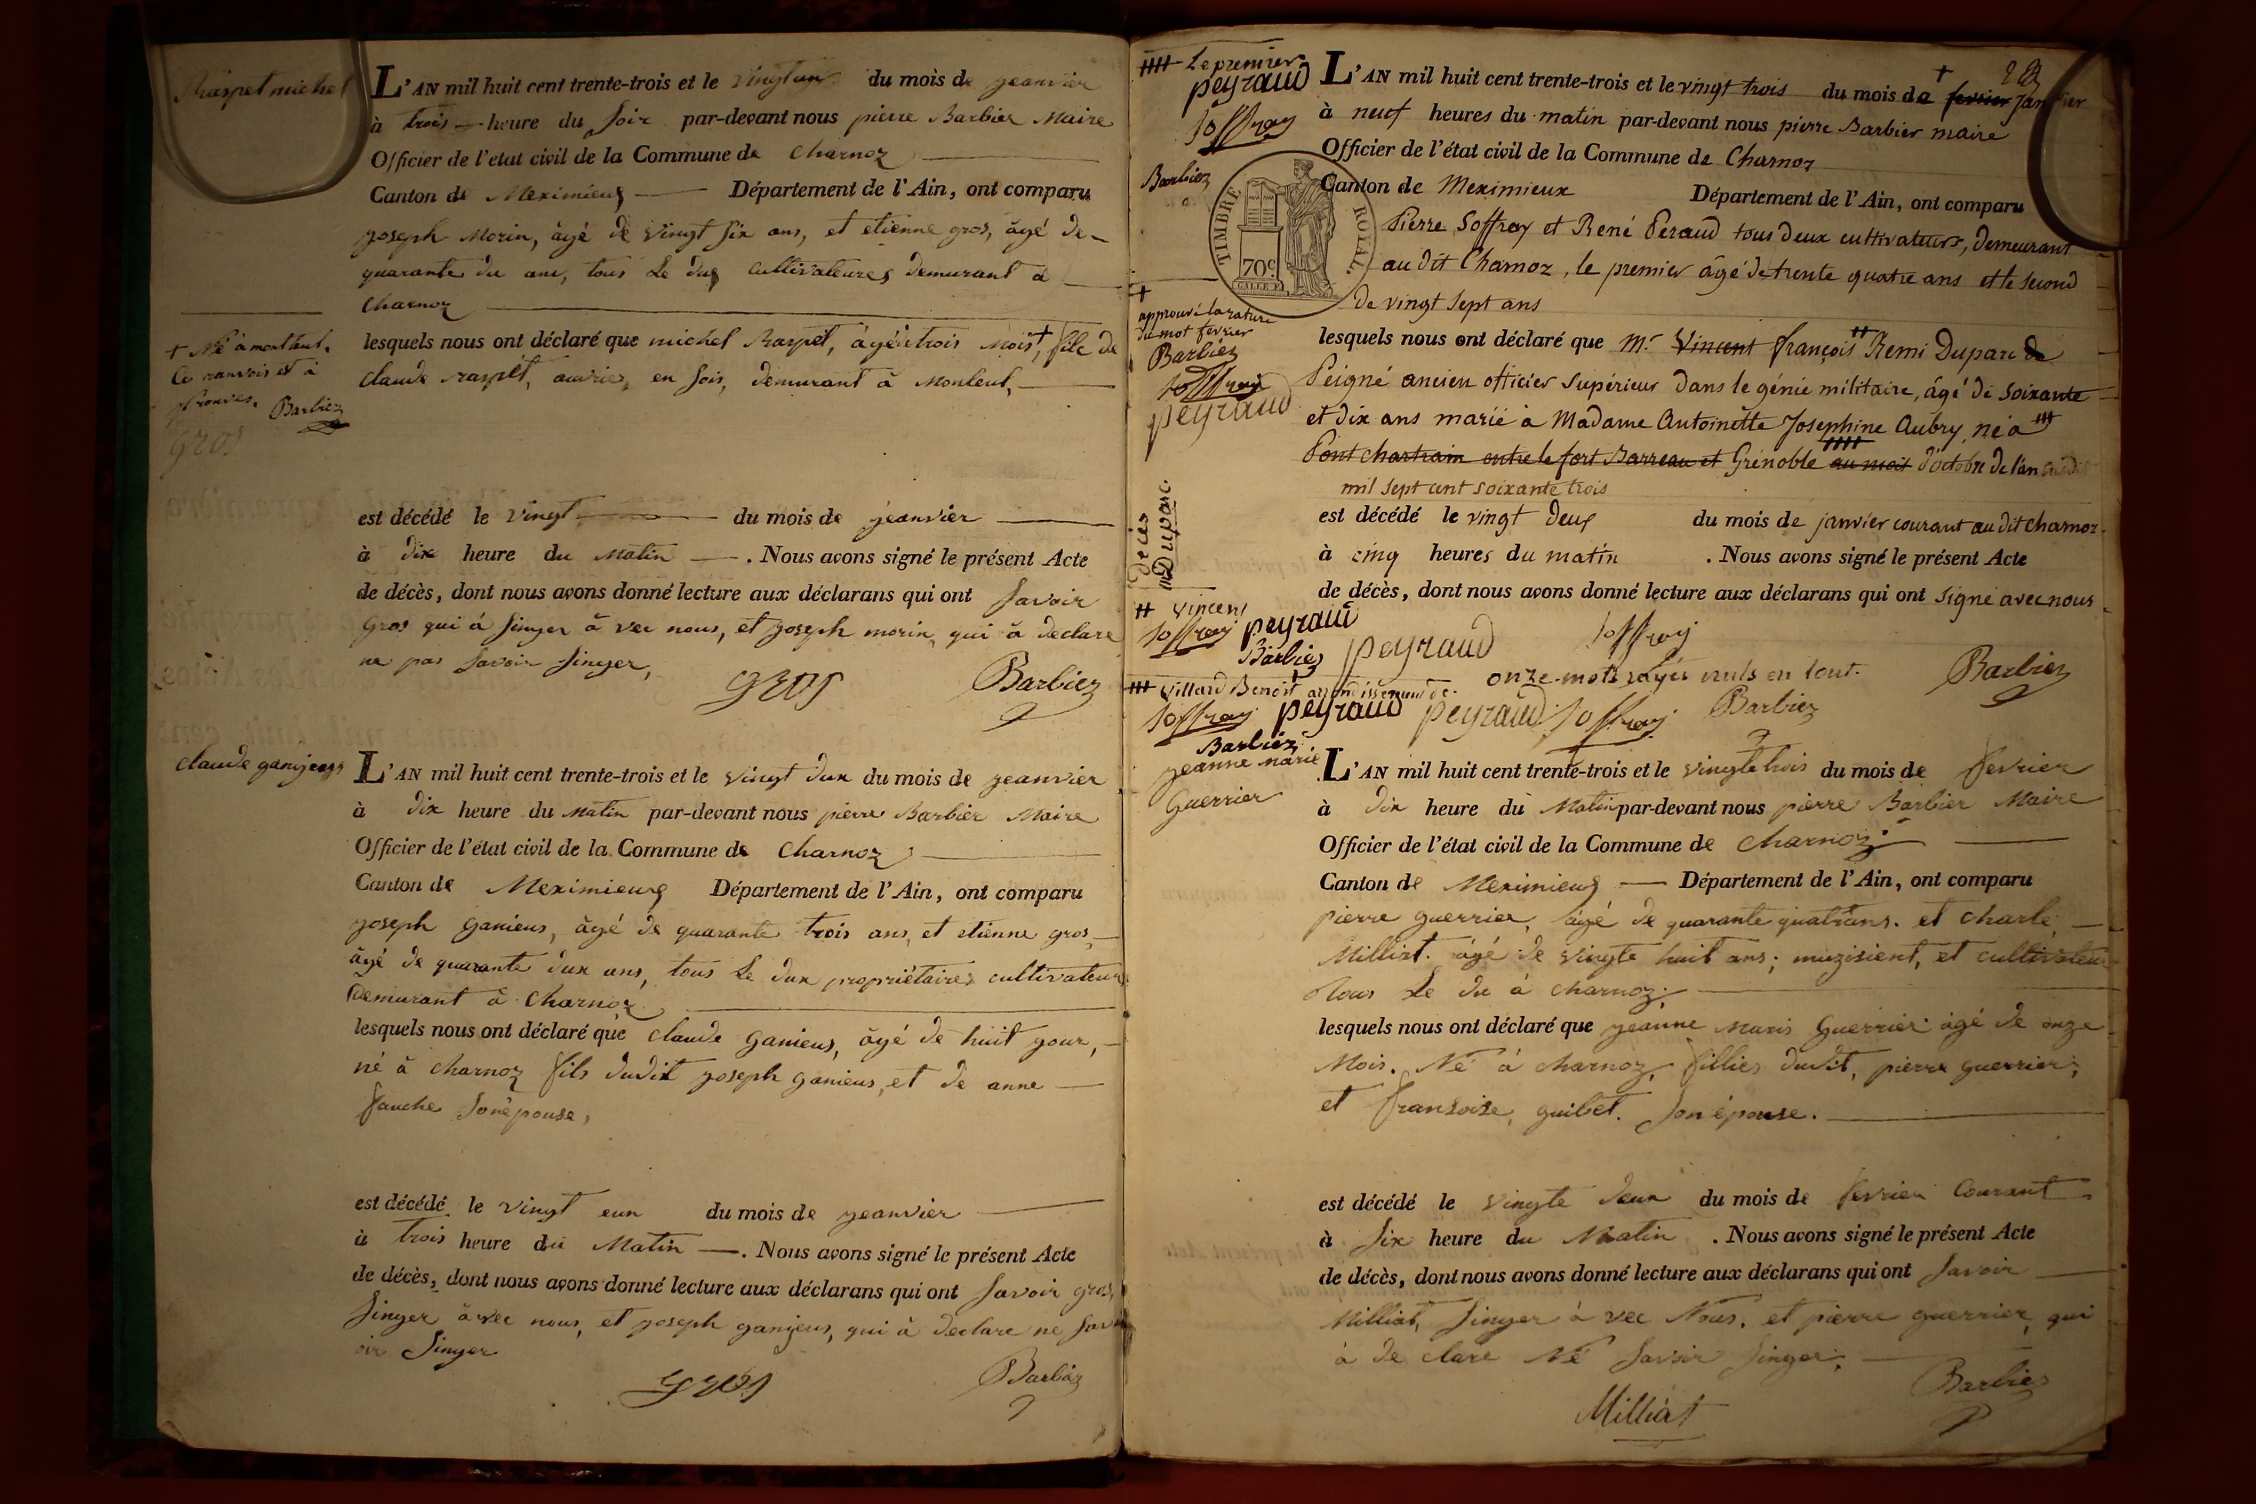 Raspet michel
L'AN mil huit cent trente-trois et le vingtun du mois de jeanvier
à trois heure du soir par-devant nous pierre Barbier Maire
Officier de l'etat civil de la Commune de Charnoz
Canton de Meximieux Département de l'Ain, ont comparu
joseph Morin, âgé de vingt six ans, et etienne gros, âgé de
quarante du ans, tous le dux cultivateures demurant a
Charnoz
lesquels nous ont déclaré que michel Raspet, âgé de trois mois +, fils de
claude raspet, ouvrier, en sois, demurant à Monleul,
+ Né à montleul.
Ce ranvois et à
prouves. Barbier
Gros
est décédé le vingt du mois de jeanvier
à dix heure du Matin . Nous avons signé le présent Acte
de décès, dont nous avons donné lecture aux déclarans qui ont savoir
Gros qui à singer à vec nous, et joseph morin, qui à declare
ne pas savoir singer,
gros Barbier
claude ganieux
L'AN mil huit cent trente-trois et le vingt dux du mois de jeanvier
à dix heure du matin par-devant nous pierre Barbier Maire
Officier de l'état civil de la Commune de Charnoz
Canton de Meximieux Département de l'Ain, ont comparu
joseph ganieus, âgé de quarante trois ans, et etienne gros,
âgé de quarante dux ans, tous le dux propriétaires cultivateurs
demurant à Charnoz
lesquels nous ont déclaré que claude ganieus, âgé de huit jour,
né à charnoz fils dudit joseph ganieus, et de anne
fauche son épouse,
est décédé le vingt eun du mois de jeanvier
à trois heure du Matin . Nous avons signé le présent Acte
de décès, dont nous avons donné lecture aux déclarans qui ont savoir gros,
singer à vec nous, et joseph ganieus, qui à declare ne sav
oir singer
gros Barbier
28
L'AN mil huit cent trente-trois et le vingt trois du mois de + fevrier janvier
à neuf heures du matin par-devant nous pierre Barbier maire
Officier de l'état civil de la Commune de Charnoz
Canton de Meximieux Département de l'Ain, ont comparu
Pierre Soffray et René Peraud tous deux cultivateurs, demeurant
au dit Charnoz, le premier âgé de trente quatre ans et le second
de vingt sept ans
lesquels nous ont déclaré que Mr. Vincent françois # Remi Duparc de
Peigné ancien officier supérieur dans le génie militaire, âgé de soixante
et dix ans marié à Madame Antoinette Josephine Aubry, né à
Pont chartrain entre le fort Barreau et Grenoble au mois d'octobre de l'an
mil sept cent soixante trois
est décédé le vingt deux du mois de janvier courant au dit charnoz
à cinq heures du matin . Nous avons signé le présent Acte
de décès, dont nous avons donné lecture aux déclarans qui ont signé avec nous
peyraud soffray
onze mots rayés nuls en tout. Barbier
peyraud soffray Barbier
Le premier
peyraud
soffray
Barbier
TIMBRE ROYAL
70c
+
approuvé la rature
du mot fevrier
Barbier
soffray
peyraud
Décès
Duparc
# Vincent
soffray peyraud
Barbier
Villard Benoit arrondissement de
soffray peyraud
Barbier
jeanne marie
Guerrier
L'AN mil huit cent trente-trois et le vingtetrois du mois de fevrier
à dix heure du Matin par-devant nous pierre Barbier Maire
Officier de l'état civil de la Commune de Charnoz
Canton de Meximieux Département de l'Ain, ont comparu
pierre guerrier, âgé de quarante quatrans. et charle
Milliat. âgé de vingte huit ans; muzisient, et cultivateur
tous le du à charnoz;
lesquels nous ont déclaré que jeanne Maris Guerrier âgé de onze
Mois. Né à charnoz, fillies dudit, pierre guerrier,
et fransoise, guibet. son épouse.
est décédé le vingte deux du mois de fevrier Courant
à six heure du Matin . Nous avons signé le présent Acte
de décès, dont nous avons donné lecture aux déclarans qui ont savoir
Milliat, singer à vec Nous. et pierre guerrier, qui
à de clare Né savoir singer;
Milliat Barbier